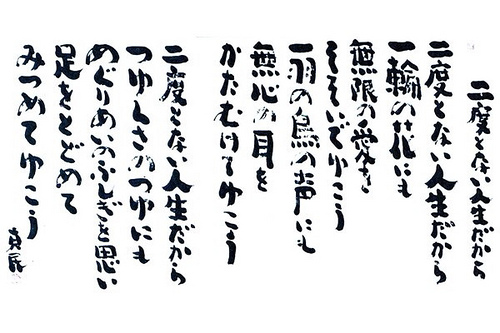 二度とない人生だから
二度とない人生だから
一輪の花にも
無限の愛を
そそいでゆこう
一羽の鳥の声にも
無心の耳を
かたむけてゆこう
二度とない人生だから
つゆくさのつゆにも
めぐりあいのふしぎを思い
足をとどめて
みつめてゆこう
真民